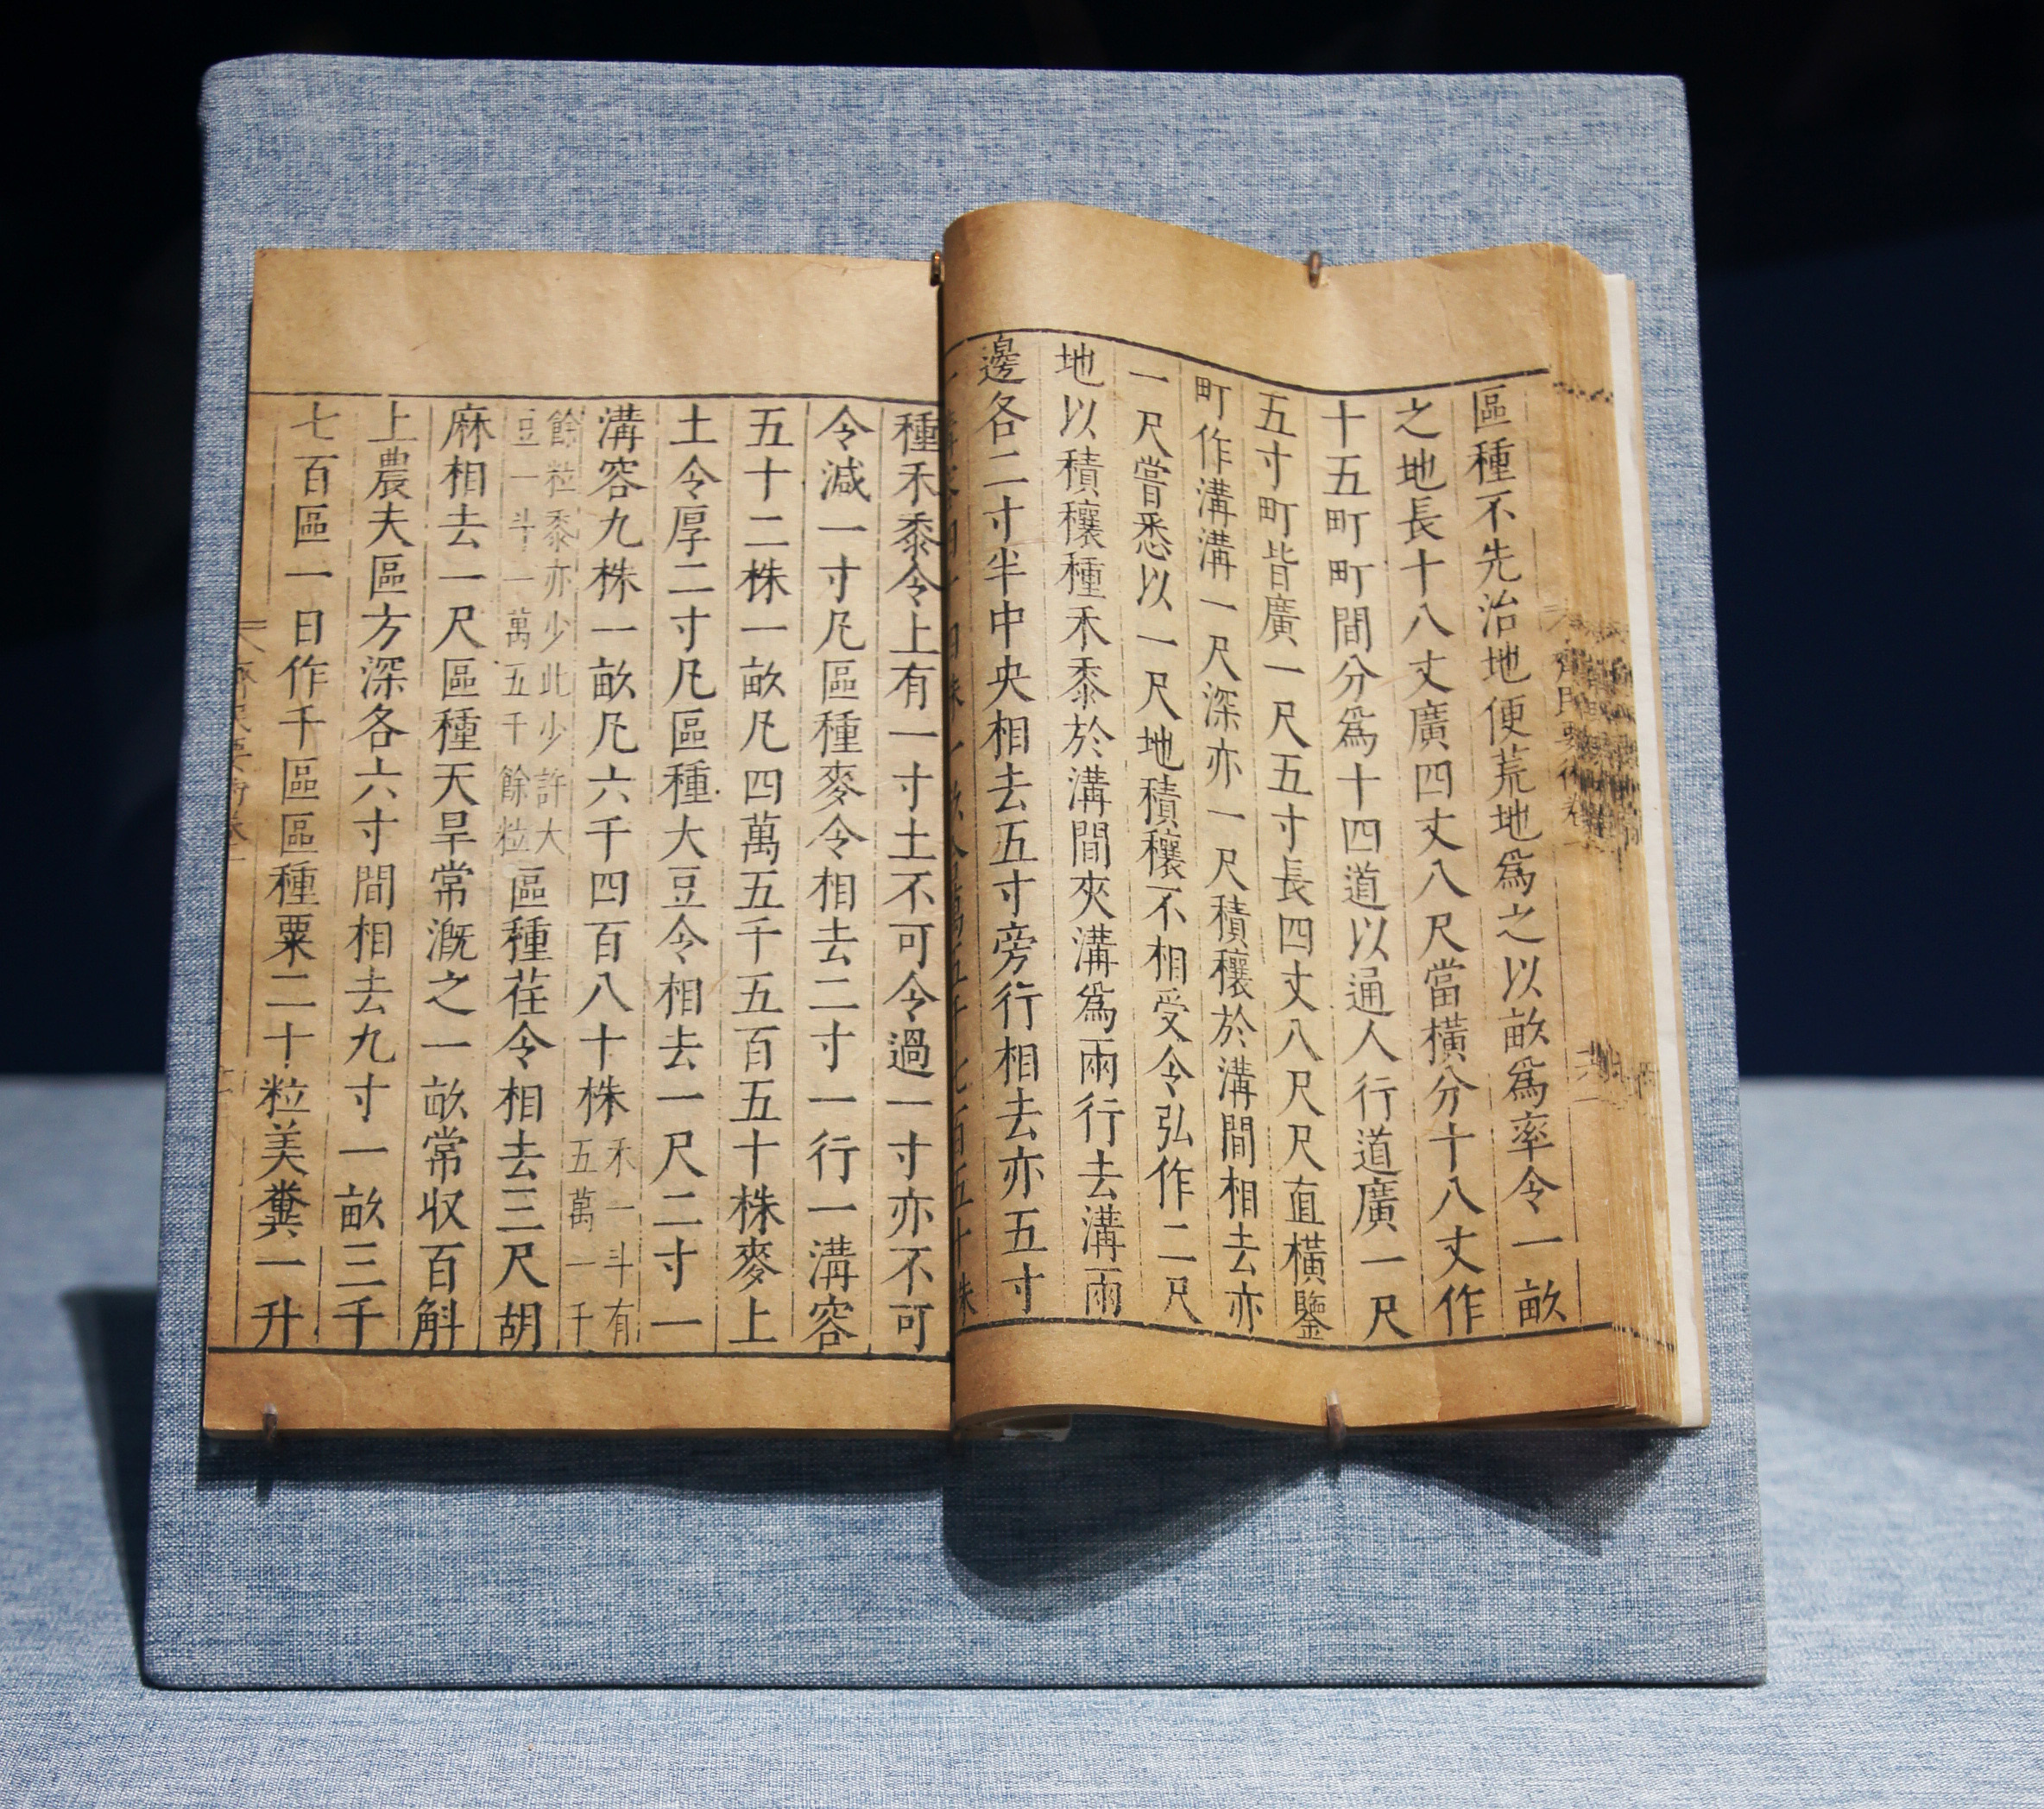 區種不先治地便荒地爲之以畝爲率令一畝
之地長十八丈廣四丈八尺當橫分十八丈作
十五町町間分爲十四道以通人行道廣一尺
五寸町皆廣一尺五寸長四丈八尺尺直橫鑒
町作溝溝一尺深亦一尺積穰於溝間相去亦
一尺嘗悉以一尺地積穰不相受令弘作二尺
地以積穰種禾黍於溝間夾溝爲兩行去溝兩
邊各二寸半中央相去五寸旁行相去亦五寸
一溝容四十四株一畝合萬五千七百五十株
種禾黍令上有一寸土不可令過一寸亦不可
令減一寸凡區種麥令相去二寸一行一溝容
五十二株一畝凡四萬五千五百五十株麥上
土令厚二寸凡區種大豆令相去一尺二寸一
溝容九株一畝凡六千四百八十株禾一斗有五萬一千
餘粒黍亦少此少許大豆一斗一萬五千餘粒區種荏令相去三尺胡
麻相去一尺區種天旱常溉之一畝常収百斛
上農夫區方深各六寸間相去九寸一畝三千
七百區一日作千區區種粟二十粒美糞一升